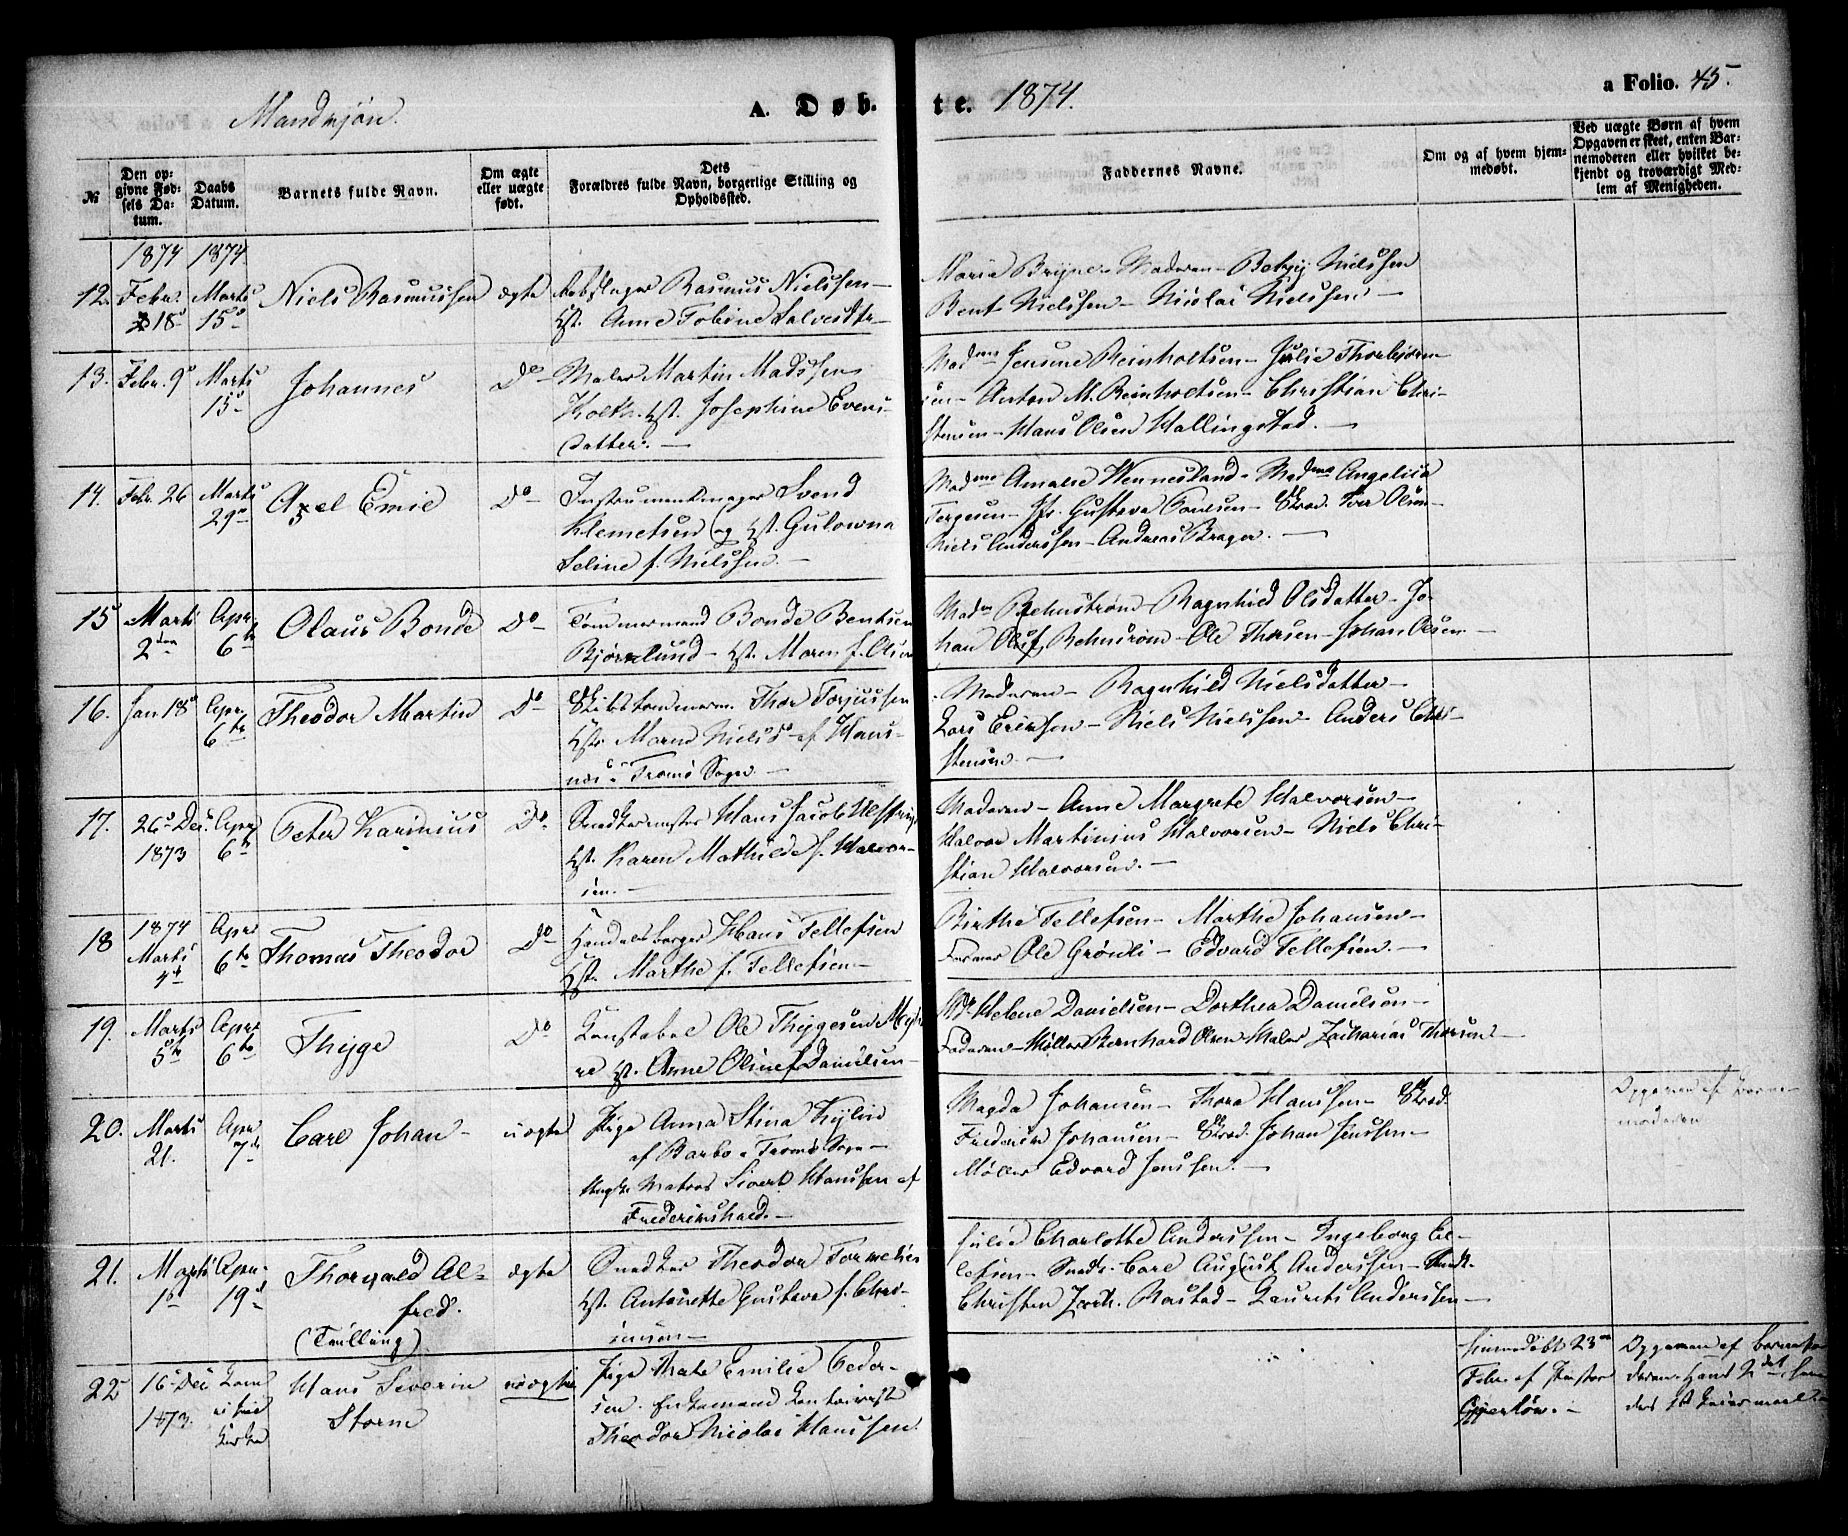 Mandkjøn.
A. Døb-
te. 1874.
a Folio. 45.
№
Den op-
givne Fød-
sels Da-
tum.
Daabs
Datum.
Barnets fulde Navn.
Om ægte
eller uægte
født.
Dets
Forældres fulde Navn, borgerlige Stilling og
Opholdssted.
Faddernes Navne.
Om og af hvem hjem-
medøbt.
Ved uægte Børn af hvem
Opgaven er skeet, enten Bar-
nemoderen eller hvilket be-
kjendt og troværdigt Med-
lem af Menigheden.
1874 1874
12. Febr. 18 Marts 15 Niels Rasmussen ægte
Rasmus Nielsen
Hst. Anne Tobine Salvesdtr
Maria Bryne - Moderen - Betzy Nielsen
Bent Nielssen - Nicolai Nielssen -
13. Febr. 9 Marts 15 Johannes Do
Maler Martin Madssen
Holth. Hst. Josephine Evens-
datter. -
Mad Jensine Reinholtsen - Julie Thorbjørn-
sen - Anton M. Reinholtsen - Christian Chri-
stensen - Hans Olsen Hallingstad. -
14. Febr. 26 Marts 29 Axel Emil Do
Instrumentmager Svend
Klemetsen og Hst. Gulowna
Seline f. Nielssen. -
Mad Amalie Wennesland - Mad Angelica
Terjesen - Gustava - Olsen -
Niels Anderssen - Andreas Brager. -
15 Marts 2den Apr. 6te Olaus Bonde Do
Tømmermand Bonde Bentsen
Bjørnlund - Hst. Maren f. Olsen
Mad Rehnstrøm - Ragnhild Olsdatter - Jo-
han Oluf Rehnstrøm - Ole Thorsen - Johan Olsen -
16. Jan 18 Apr. 6te Theodor Martin Do
Skibstømmerm. Thor Terjussen
Hst. Maren Nielsd af Haus-
næs i Tromø Sogn. -
Moderen - Ragnhild Nielsdatter -
Lars Eriksen - Niels Nielssen - Anders Chri-
stensen. -
17. 26 Dec. 1873 Apr. 6te Peter Karinius Do
Snedkermester Hans Jacob
Hst. Karen Mathilde f. Halvor-
sen. -
Moderen - Anne Margrete Halvorsen -
Halvor Martinius Halvorsen - Niels Chri-
stian Halvorsen. -
18 1874 Marts 4de Apr 6te Thomas Theodor Do
Handelsborger Hans Tellefsen
Hst. Marthe f. Tellefsen -
Birthe Tellefsen - Marthe Johansen -
Ole Grønli - Edvard Tellefsen. -
19. Marts 5te Apr 6te Thyge Do
Konstabel Ole Thygesen
Hst. Anne Oline f Danielsen -
Helene Davidsen - Dorthea Danielsen -
Faderen - Møller Bernhard Olsen Maler Zacharias Thorsen -
20. Marts 21. Apr 7de Carl Johan - uægte
Pige Anna Stina
af Barbo i Tromø Sogn -
Ungk. Matros Sivert Hanssen af
Frederikshald. -
Magda Johansen - Thora Hanssen -
Frederik Johansen - Johan Jenssen -
Møller Edvard Jenssen. -
Opgaven af Barne-
moderen
21. Marts 1ste Apr. 19 Thorvald Al-
fred.
(Tvilling)
ægte
Snedker Theodor
Hst. Antonette Gustava f. Chri-
stensen -
Julie Charlotte Anderssen - Ingeborg El-
lefsen - Carl August Anderssen -
Christen Zach. Rostad - Laurits Anderssen -
22 16 Dec 1873. Kom
i
Kirke
Hans Severin
Storm
uægte
Pige Emilie Peder-
sen. Enkemand Kontorist
Theodor Nicolai Hanssen.
Hjemmedøbt 23
Febr. af Præsten
Gjerløw. -
Opgaven af Barnemo-
deren. Hans 2det, hen-
des 1ste Leiermaal